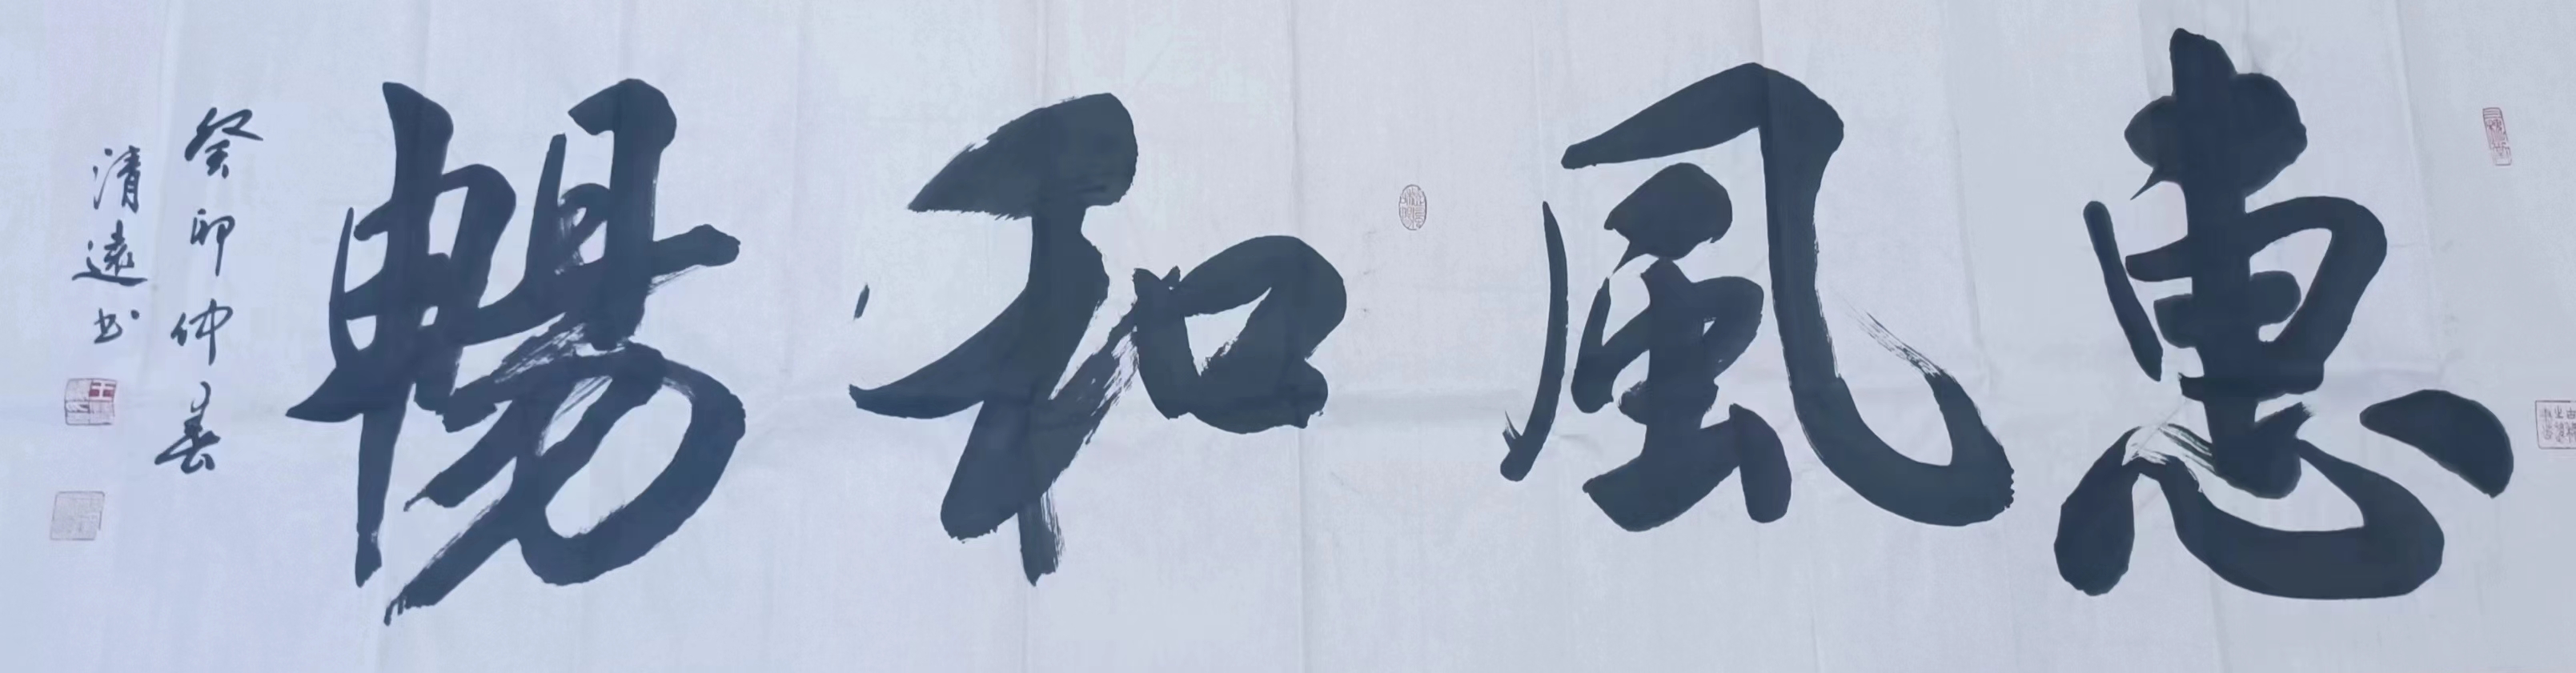 惠風和暢
癸卯仲春
清遠书